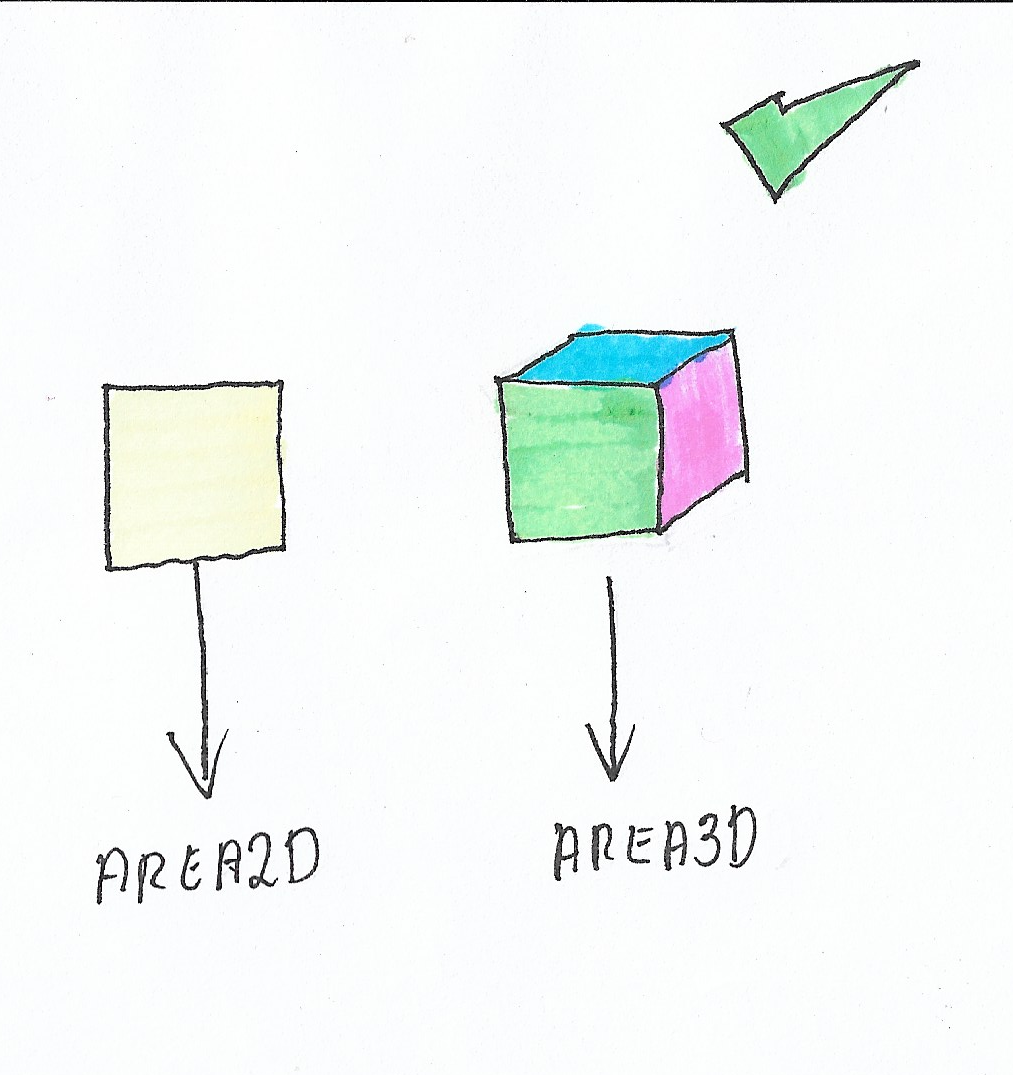 AREA2D
AREA3D